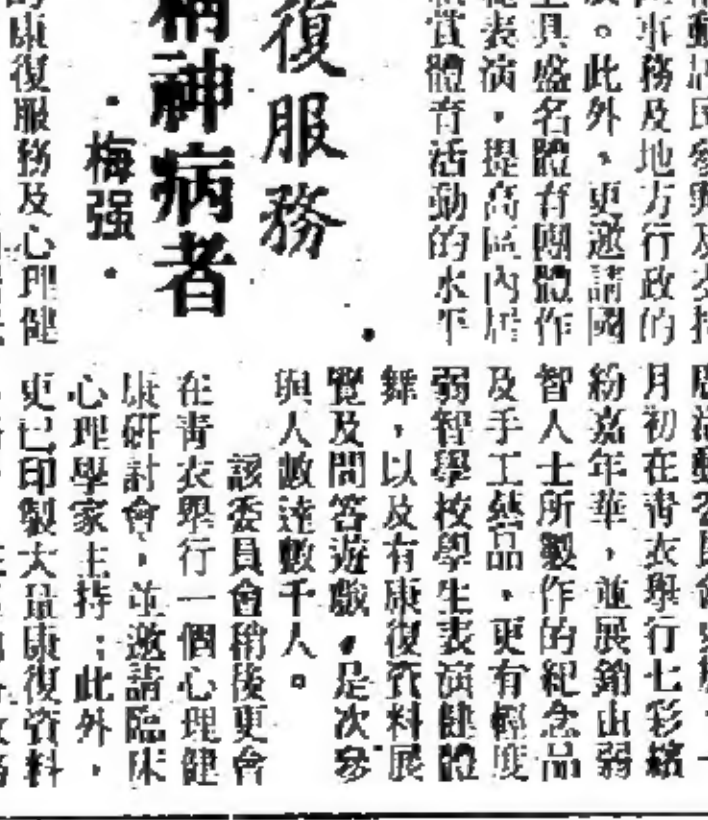 事務及地方行政的
。此外，更邀請國
具盛名體育團體作
表演，提高區內居
賞體育活動的水平
復服務
精神病者
·梅强·
康復服務及心理健
月初在青衣舉行七彩繽
紛嘉年華，並展銷由弱
智人士所製作的紀念品
及手工藝品，更有輕度
弱智學校學生表演健體
舞，以及有康復資料展
覽及問答遊戲，是次參
與人數達數千人。
該委員會稍後更會
在青衣舉行一個心理健
康研討會，並邀請臨床
心理學家主持；此外，
更已印製大量康復資料